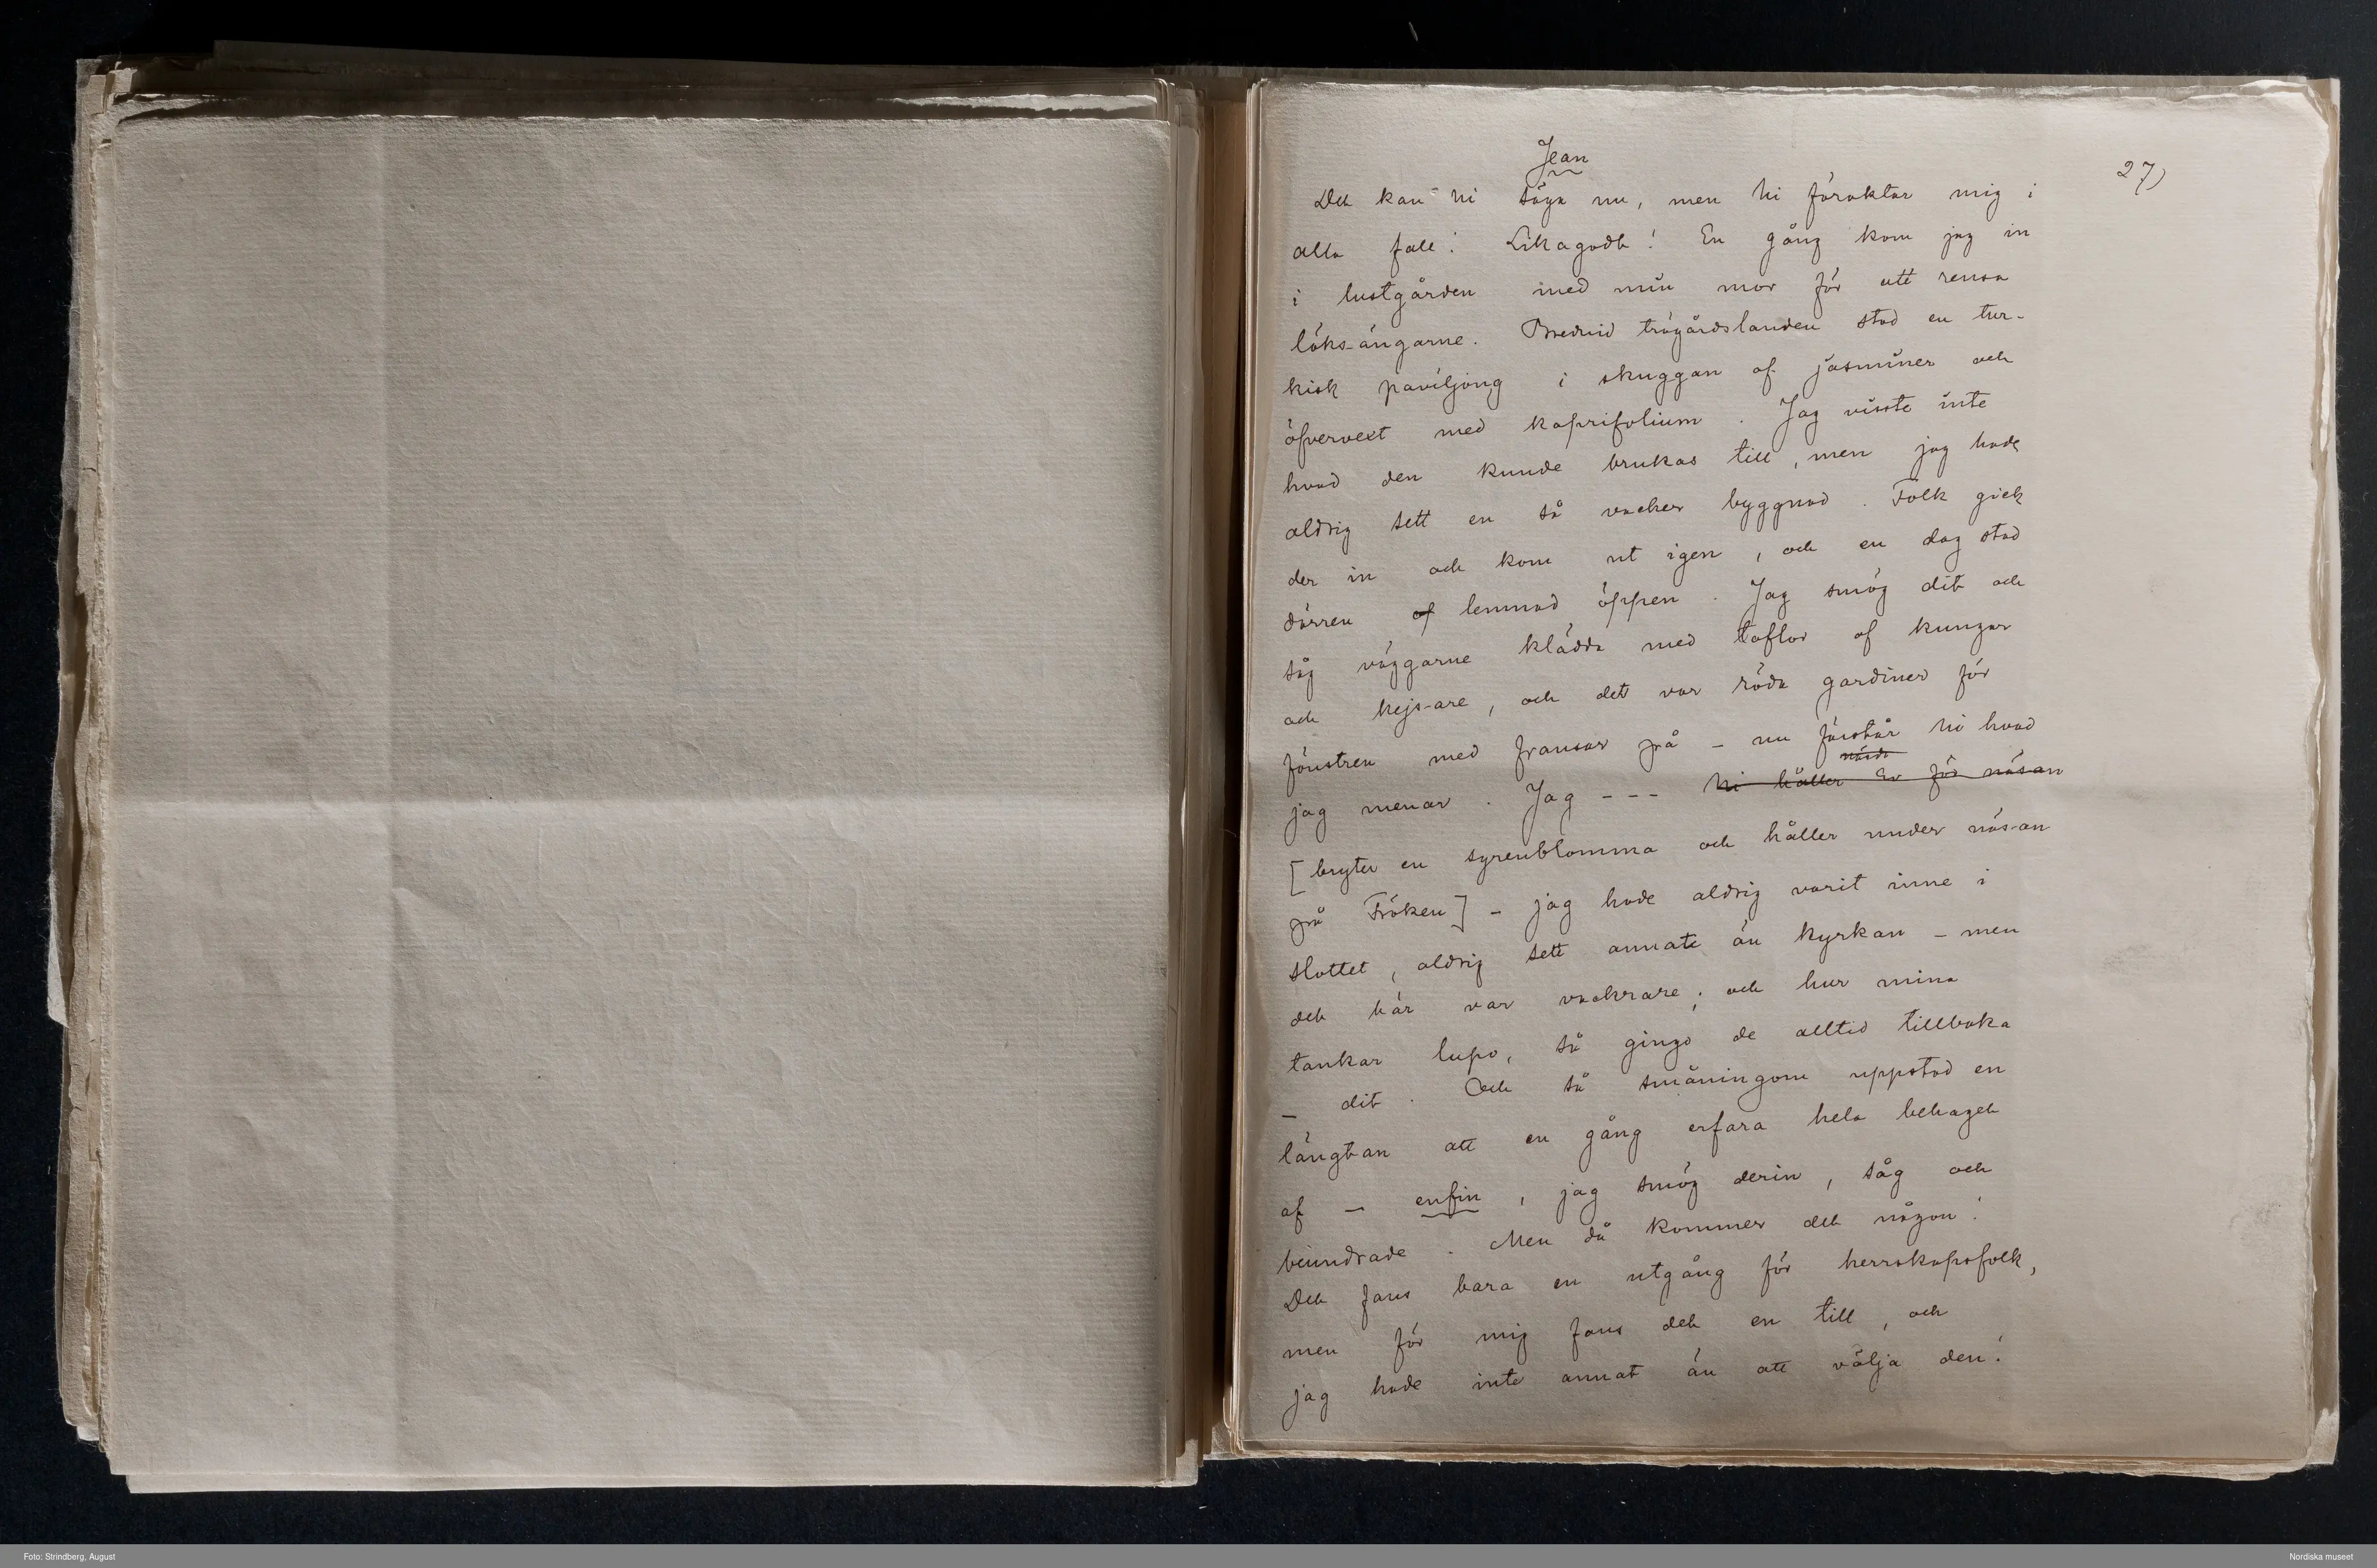 Jean
27)
Det kan ni säga nu, men ni föraktar mig i
alla fall! Likagodt! En gång kom jag in
i lustgården med min mor för att rensa
löks-ängarne. Bredvid trägårdslanden stod en tur-
kisk paviljong i skuggan af jasminer och
öfvervext med kaprifolium. Jag visste inte
hvad den kunde brukas till, men jag hade
aldrig sett en så vacker byggnad. Folk gick
der in och kom ut igen, och en dag stod
dörren af lemnad öppen. Jag smög dit och
såg väggarne klädda med taflor af kungar
och kejs-are, och det var röda gardiner för
fönstren med fransar på – nu förstår ni hvad
jag menar. Jag - - - ni håller Er för näsan
[bryter en syrenblomma och håller under näs-an
på Fröken] – jag hade aldrig varit inne i
slottet, aldrig sett annat än kyrkan – men
det här var vackrare; och hur mina
tankar lupo, så gingo de alltid tillbaka
– dit. Och så småningom uppstod en
längtan att en gång erfara hela behaget
af – enfin, jag smög derin, såg och
beundrade. Men då kommer det någon!
Det fans bara en utgång för herrskapsfolk,
men för mig fans det en till, och
jag hade inte annat än att välja den!
Foto: Strindberg, August
Nordiska museet